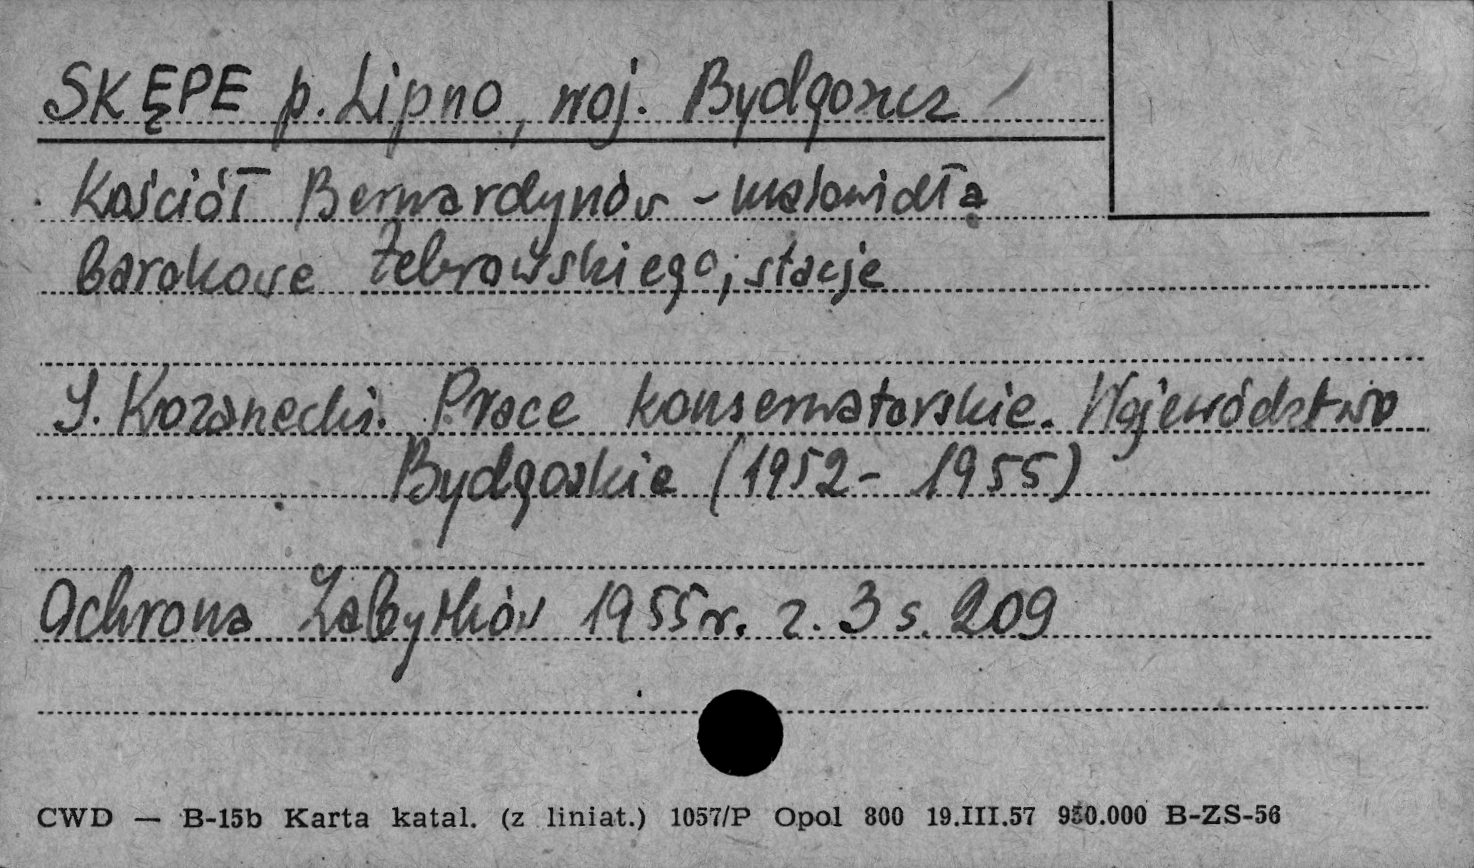 SKĘPE p. Lipno, woj. Bydgoszcz
Kościół Bernardynów - malowidła
barokowe Żebrowskiego, stacje
J. Kozanecki. Prace konserwatorskie. Województwo
Bydgoskie (1952- 1955)
Ochrona Zabytków 1955 r. z. 3 s. 209
CWD — B-15b Karta katal. (z liniat.) 1057/P Opol 800 19.III.57 950.000 B-ZS-56